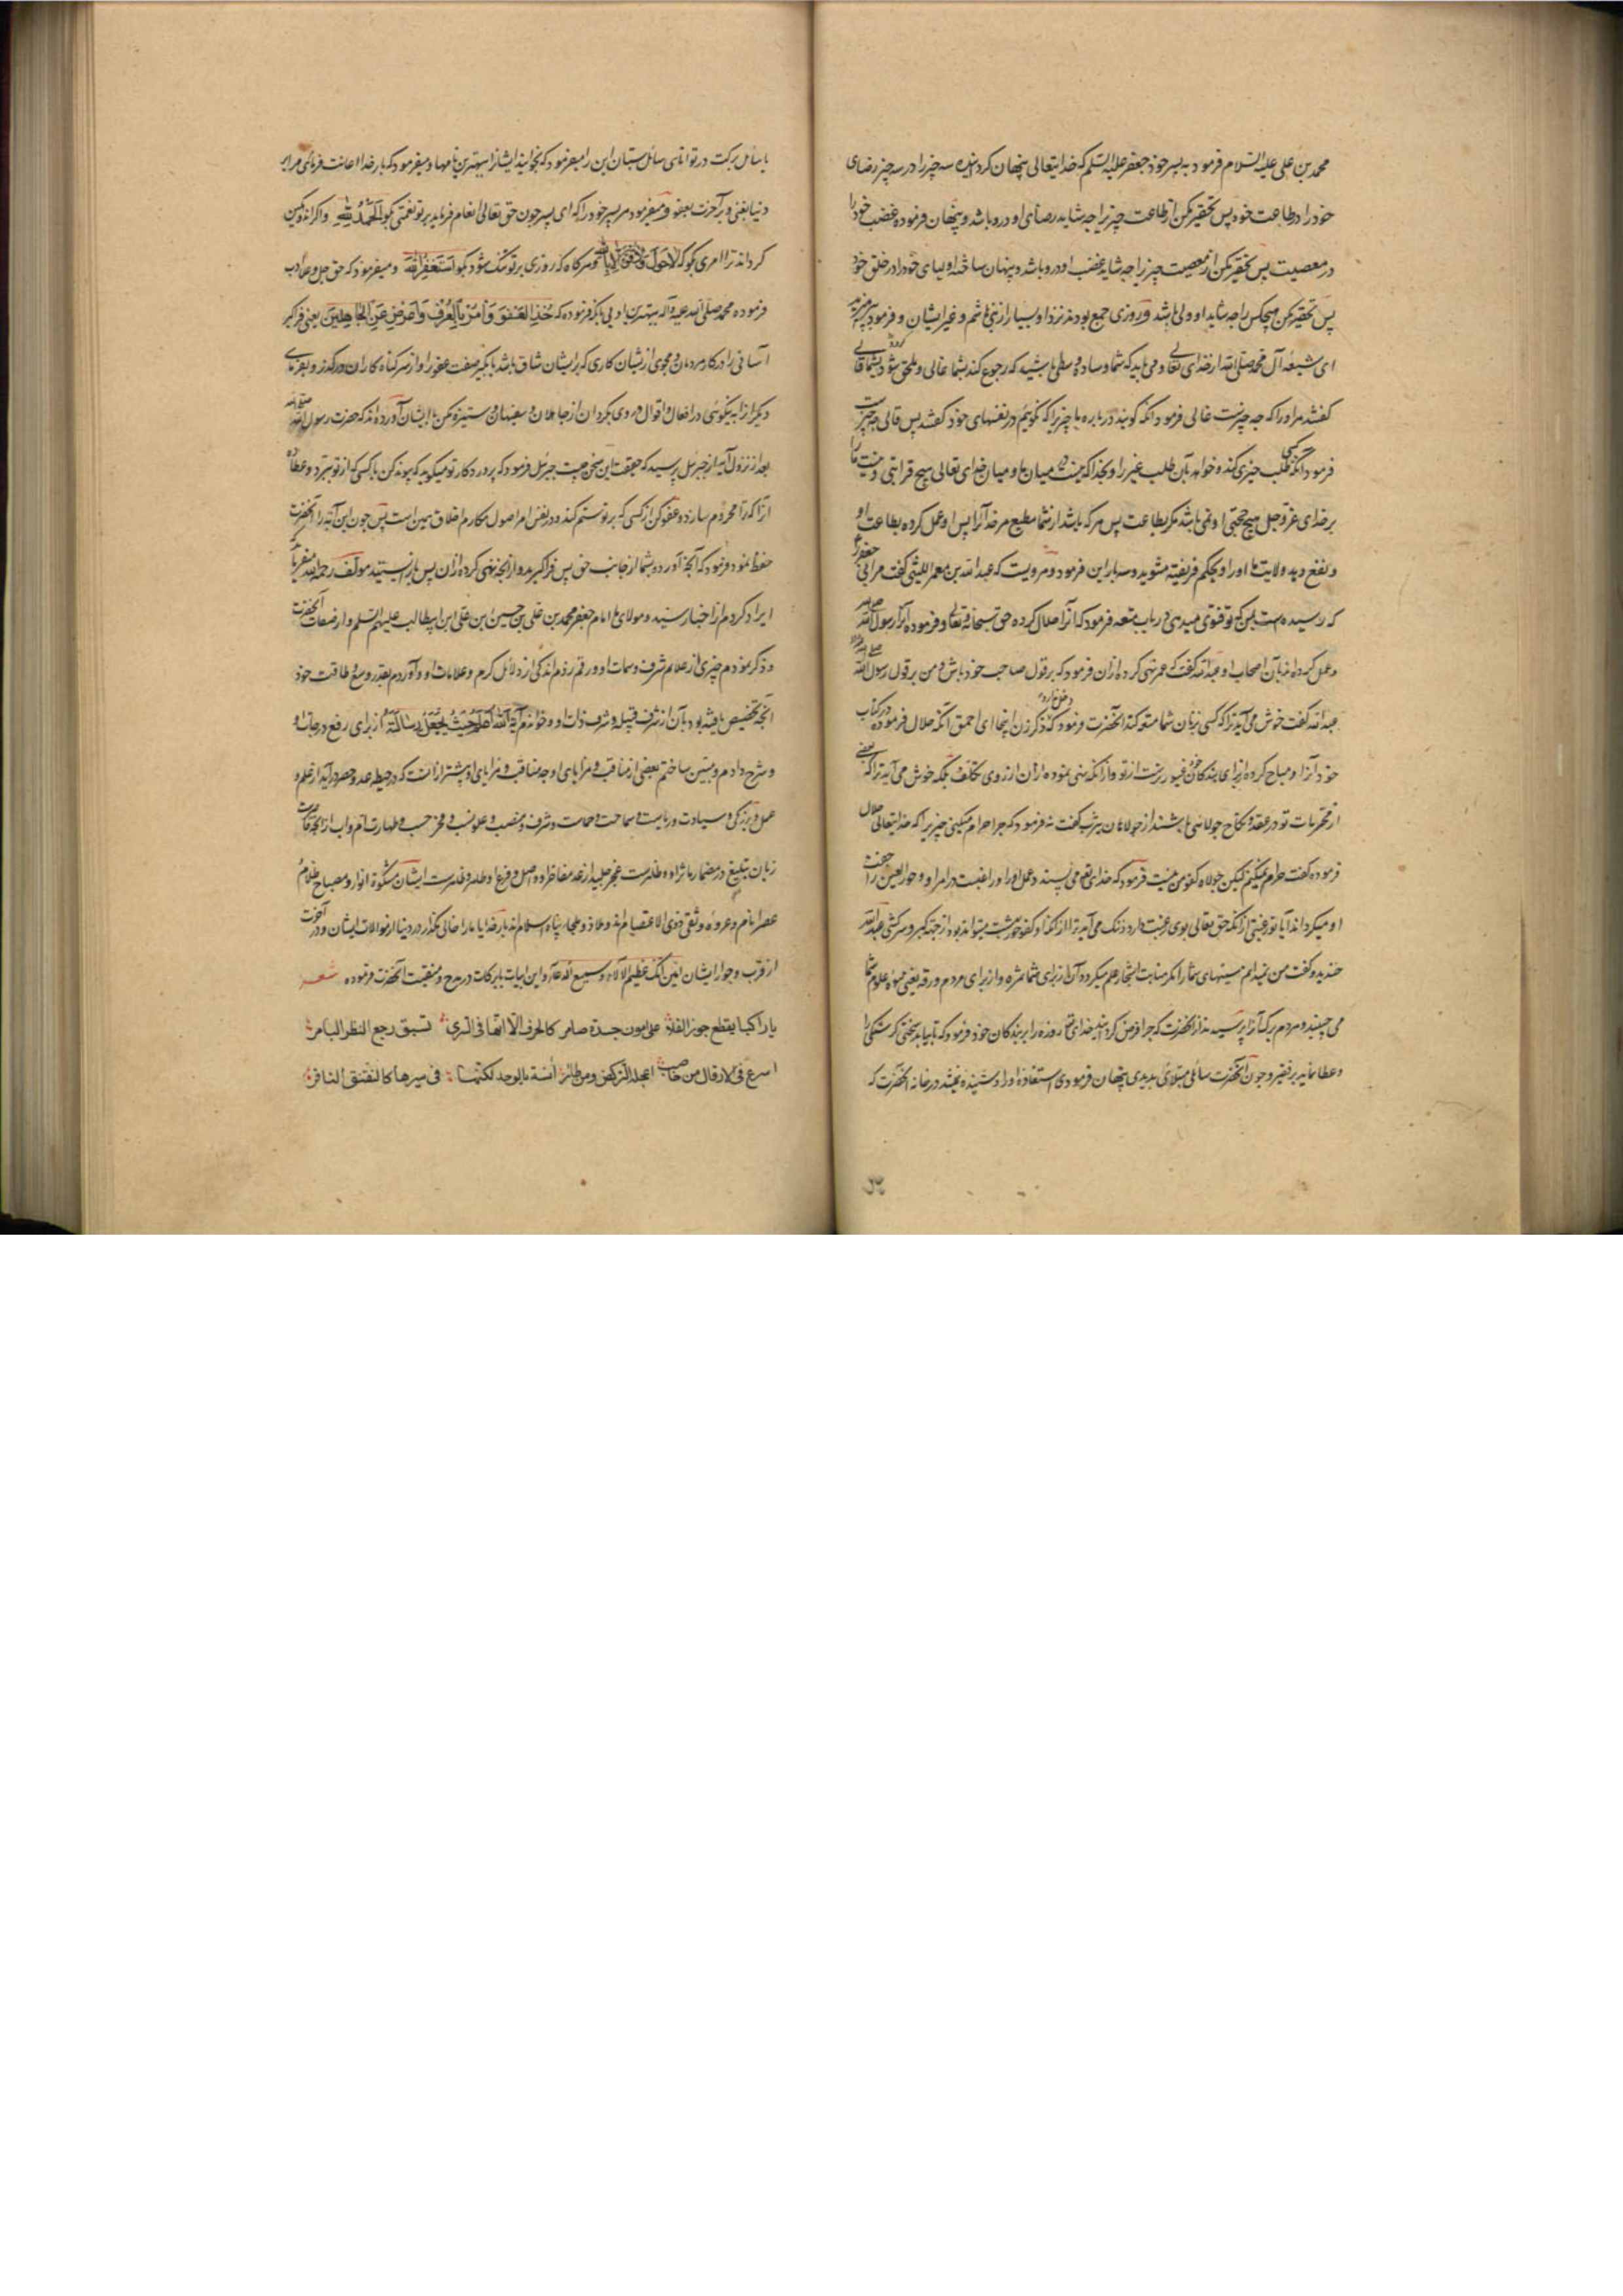 محمد بن علی علیه السلام فرمود به پسر خود جعفر علیه السلم که خدایتعالی پنهان کردانیده سه چیز را در سه چیز رضای
خود را در طاعت خود پس تحقیر مکن از طاعت چیزیرا چه شاید رضای او درو باشد و پنهان فرموده غضب خود را
در معصیت پس تحقیر مکن از معصیت چیزیرا چه شاید غضب او درو باشد و پنهان ساخته اولیای خود را در خلق خود
پس تحقیر مکن هیچکس را چه شاید او ولی باشد و روزی جمع بودند نزد او بسیار از بنی هاشم و غیر ایشان و فرمود
ای شیعه آل محمد صلی الله از خدای تعالی و می باید که شما وساده وسطی باشید که رجوع کند بشما غالی و ملحق شود بشما قالی
کفتند مر او را که چه چیزست غالی فرمود انکه کویند در باره ما چیزیرا که نکوییم در نفسهای خود کفتند پس قالی چه چیزست
فرمود انکه طلب خیری کند و خواهد بآن طلب غیر را و بخدا که نیست میان ما و میان خدای تعالی هیچ قرابتی و نیست ما را
بر خدای عز و جل هیچ حجتی او نمی باشد مکر بطاعت پس هر که باشد از شما مطیع مر خدا را پس او عمل کرده بطاعت او
و نفع دهد ولایت ما او را و یحکم فریفته مشوید و سه بار این فرمود و مرویست که عبدالله بن معمر اللیثی کفت مر ابی جعفر را
که رسیده است بمن که تو فتوی میدهی در باب متعه فرمود که آنرا حلال کرده حق سبحانه و تعالی و فرموده آنرا رسول الله
و عمل کرده اند بآن اصحاب او عبدالله کفت که عمر نهی کرده از ان فرمود که بر قول صاحب خود باش و من بر قول رسول الله
عبدالله کفت خوش می آید ترا که کسی بزنان شما متعه کند آنحضرت فرمود که ذکر زن اینجا ای احمق انکه حلال فرموده در کتاب
خود آنرا و مباح کرده از برای بندکان خود غیورترست از تو و از انکه نهی نموده از ان از روی تکلف بلکه خوش می آید ترا که بعضی
از محرمات تو در عقد و نکاح جولاهی باشند از جولاهان یثرب کفت نه فرمود که چرا حرام میکنی چیزیرا که خدایتعالی حلال
فرموده کفت حرام نمیکنم لیکن جولاه کفو من نیست فرمود که خدای تعالی می پسندد عمل او را و راغبست در امر او و حور العین را جفت
او میکرداند آیا تو رغبتی از انکه حق تعالی بوی رغبت دارد و ننک می آید ترا از انکه او کفو حور بهشت میتواند بود از جهة تکبر و سرکشی عبدالله
خندید و کفت من نمیدانم سینهای شما را مکر منابت اشجار علم میکردد آن از برای شما ثمره و از برای مردم ورقه یعنی میوه علوم شما
می چینید و مردم برک آنرا پرسیدند از آنحضرت که چرا فرض کردانید خدای تعالی روزه را بر بندکان خود فرمود که تا بیابد سختی کرسنکی را
و عطا نماید بر فقیر و چون آنحضرت سائلی مبتلای بدیدی پنهان فرمودی استعاذه او را و شنیده نمیشد در خانه آنحضرت که
یا سائل برکت در تو باد ای سائل بستان این را میفرمود که بخوانید ایشانرا ببهترین نامها و میفرمود که بار خدا اعانت فرمای مرا بر
دنیا بغنی و بر آخرت بعفو و میفرمود مر پسر خود را که ای پسر چون حق تعالی انعام فرماید بر تو نعمتی بکو الحمد لله و اکر اندوهکین
کرداند ترا امری بکو که لا حول و لا قوة الا بالله و هر کاه که روزی بر تو تنک شود بکو استغفر الله و میفرمود که حق جل و علا ادب
فرموده محمد صلی الله علیه و آله بهترین ادبی بانکه فرموده که خذ العفو وامر بالعرف واعرض عن الجاهلین یعنی فراکیر
آسانی را در کار مردمان و مجوی از یشان کاری که بر ایشان شاق باشد یا بکیر صفت عفو را و از سر کناه کاران در کذر و بفرمای
دیکرانرا به نیکوئی در افعال و اقوال و روی بکردان از جاهلان و سفیهان و ستیزه مکن با ایشان آورده اند که حضرت رسول الله
بعد از نزول آیه از جبرئیل پرسید که حقیقت این سخن چیست جبرئیل فرمود که پروردکار تو میکوید که پیوند کن با کسی که از تو ببرد و عطا ده
آنرا که ترا محروم سازد و عفو کن از کسی که بر تو ستم کند و در نفس امر اصول مکارم اخلاق همین است پس چون این آیه را آنحضرت
حفظ نمود فرمود که آنچه آورده بشما از جانب حق پس فراکیرید و از آنچه نهی کرده از ان پس باز ایستید مولف رحمه الله میفرماید
ایراد کردم از اخبار سید و مولای ما امام جعفر محمد بن علی بن حسین ابن علی ابن ابیطالب علیهم السلم و از صفات آنحضرت
و ذکر نمودم چیزی از علایم شرف و سمات او و رقم زدم اندکی از دلائل کرم و علامات او و آوردم بقدر وسع و طاقت خود
آنچه تخصیص یافته بود بآن از شرف قبیله و شرف ذات او و خواندم آیه الله اعلم حیث یجعل رسالته از برای رفع درجات او
و شرح دادم و مبین ساختم بعضی از مناقب و مزایای او چه مناقب و مزایای او بیشتر از انست که در حیطه عد و حصر در آید از علم و
عمل و بزرکی و سیادت و ریاست و سماحت و حماست و شرف و منصب و علو نسب و فخر حسب و طهارت ام و اب از آنچه قاصرست
زبان بلیغ در مضمار مآثر او و ظاهرست عجز جلید از عد مفاخر او و اصل و فرع او طاهر و ظاهرست ایشان مشکوة انوار و مصباح ظلام
عصر انام و عروه وثقی ذوی الاعتصام اند و ملاذ و ملجا و پناه اسلام اند بار خدایا ما را خالی مکذار در دنیا از موالات ایشان و در آخرت
از قرب و جوار ایشان آمین انک عظیم الآلاء و سمیع الدعاء و این ابیات بابرکات در مدح و منقبت آنحضرت فرموده شعر
یا راکبا یقطع جوز الفلا علی امون جسرة ضامر کالحرف الا انها فی السری تسبق رجع النظر الباصر
اسرع فی الارقال من خاضب اعجله الرکض ومن طائر آنسة بالوخد لکنها فی سیرها کالنقنق النافر